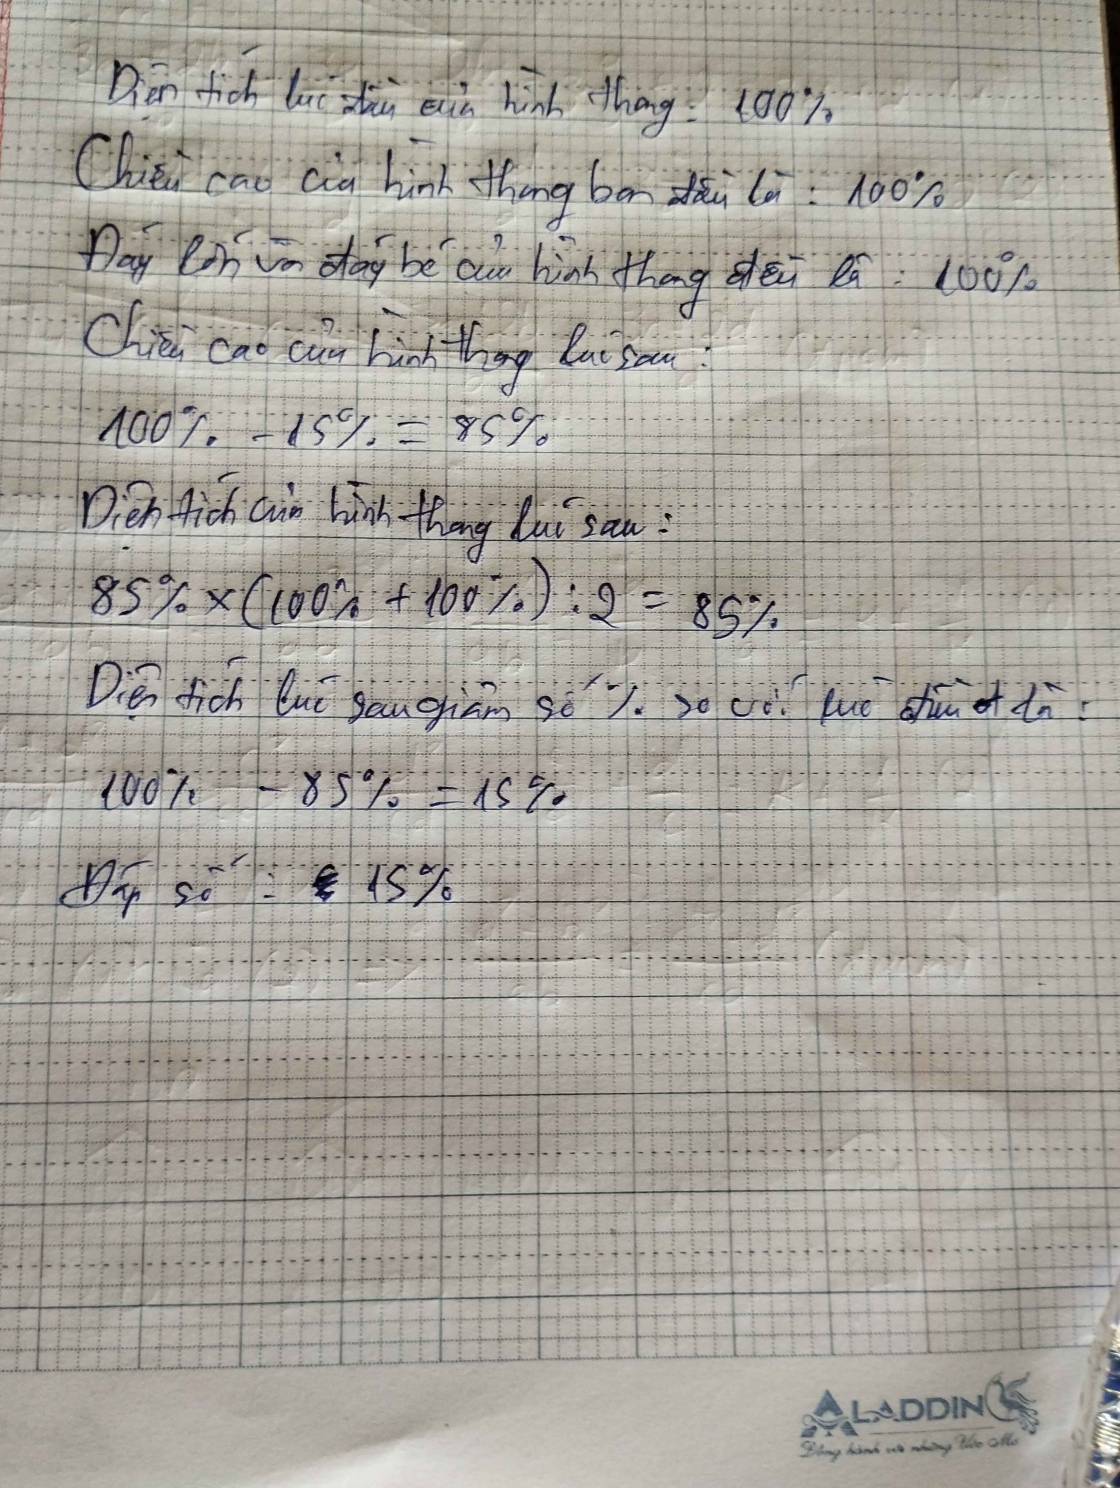 Diện tích lúc đầu của hình thang: 100%
Chiều cao của hình thang ban đầu là: 100%
Đáy lớn và đáy bé của hình thang đều là: 100%
Chiều cao của hình thang lúc sau:
100% - 15% = 85%
Diện tích của hình thang lúc sau:
85% x (100% + 100%) : 2 = 85%
Diện tích lúc sau giảm số % so với lúc đầu là:
100% - 85% = 15%
Đáp số: 15%
ALADDIN
Đồng hành với những Ước Mơ